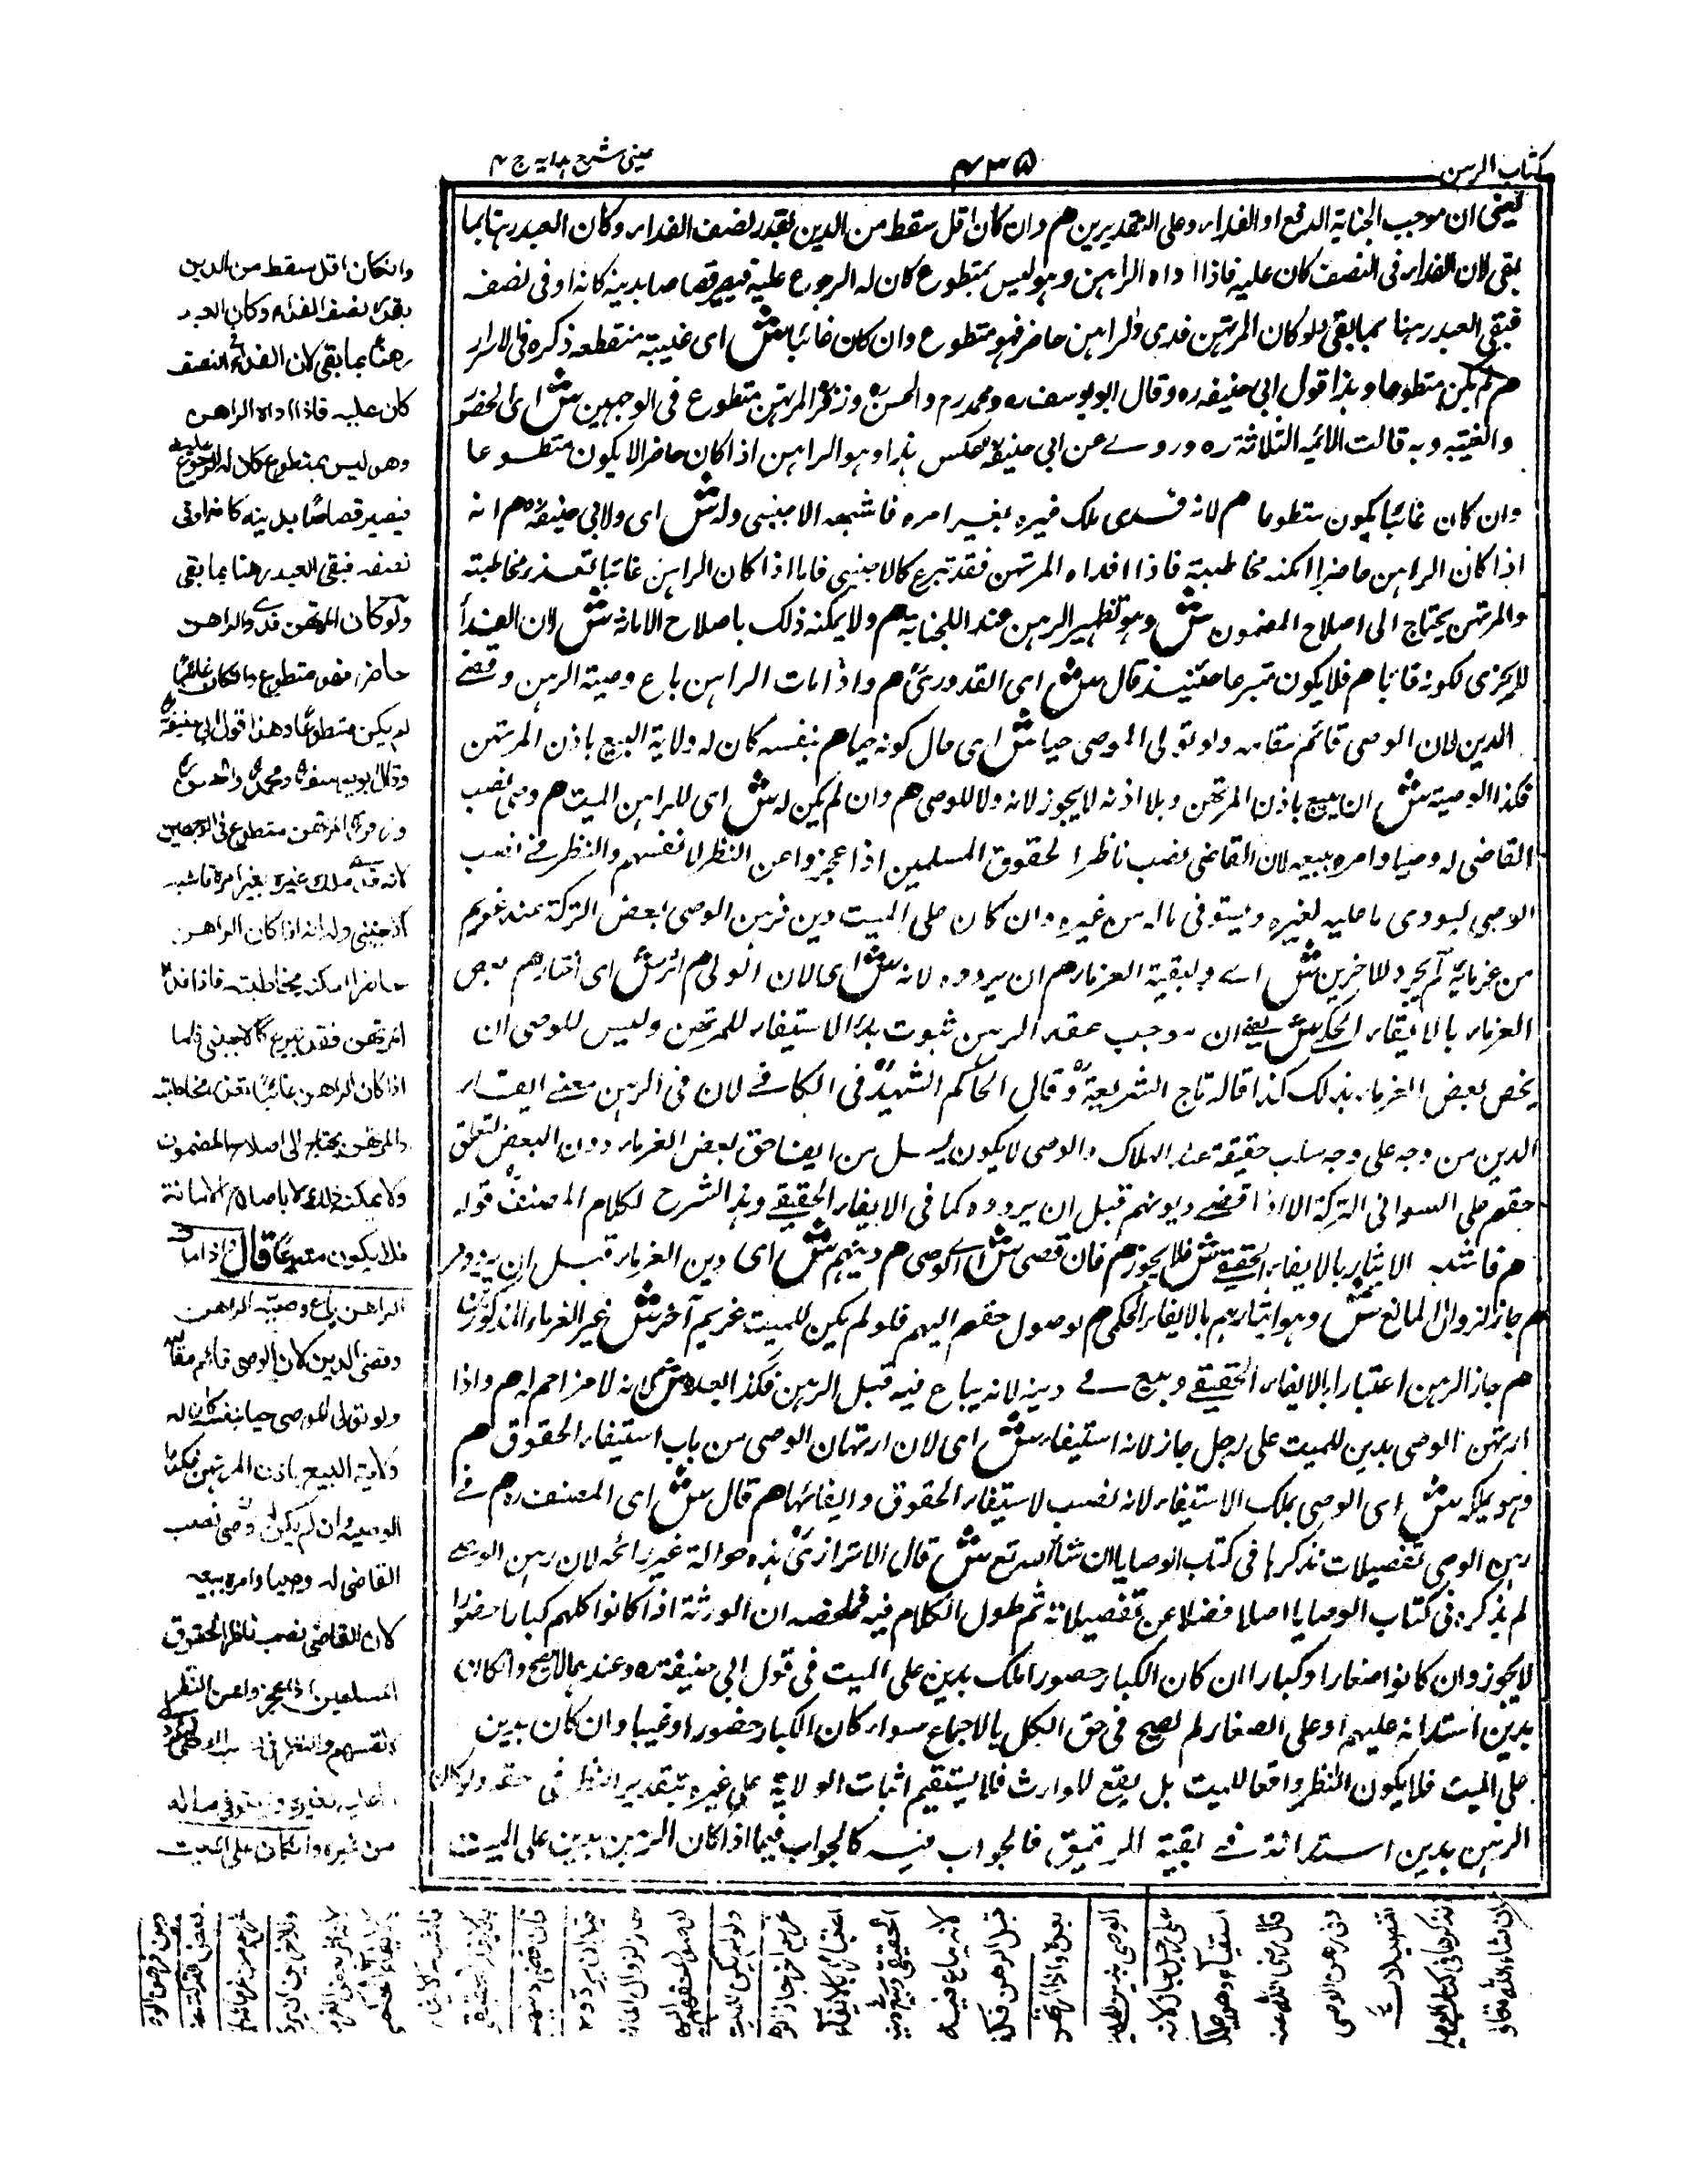 كتاب الرهن
٤٣٥
عينى شرح هدايه ج ٤
يعنى ان موجب الجناية الدفع او الفداء وعلى التقديرين هم وان كان اقل سقط من الدين بقدر نصف الفداء وكان العبد رهنا بما
بقى لان الفداء فى النصف كان عليه فاذا اداه الراهن وهو ليس بمتطوع كان له الرجوع عليه فيصير قصاصا بدينه كانه اوفى نصفه
فبقى العبد رهنا بما بقى ولو كان المرتهن فدى والراهن حاضر فهو متطوع وان كان غائبا ش اى غيبته منقطعه ذكره فى الاسرار
هم لم يكن متطوعا وهذا قول ابى حنيفه ره وقال ابو يوسف ره ومحمد رح والحسن ره وزفر ره المرتهن متطوع فى الوجهين ش اى الحضور
والغيبة وبه قالت الائمه الثلاثة ره وروے عن ابى حنيفة ره عكس هذا وهو الراهن اذا كان حاضرا لا يكون متطوعا
وان كان غائبا يكون متطوعا هم لانه فدى ملك غيره بغير امره فاشبه الاجنبى وله ش اى ولابى حنيفة ره هم انه
اذا كان الراهن حاضرا امكنه مخاطبته فاذا افداه المرتهن فقد تبرع كالاجنبى فاما اذا كان الراهن غائبا تعذر مخاطبته
والمرتهن يحتاج الى اصلاح المضمون ش وهو تطهير الرهن عند الجناية هم ولا يمكنه ذلك باصلاح الامانة ش لان الفداء
لا يجزى لكونه هم فلا يكون متبرعا حينئذ قال ش اى القدورى هم واذا مات الراهن باع وصية الرهن وقضے
الدين لان الوصى قائم مقامه ولو تولى الموصى حيا ش اى حال كونه حيا هم بنفسه كان له ولاية البيع باذن المرتهن
فكذا الوصية ش ان يبيع باذن المرتهن وبلا اذنه لا يجوز لانه ولا للوصى هم وان لم يكن له ش اى للراهن الميت هم وصى نصب
القاضى له وصيا وامره ببيعه لان القاضى نصب ناظرا لحقوق المسلمين اذا عجزوا عن النظر لانفسهم والنظر فے نصب
الوصى ليودى ما عليه لغيره ويستوفى ماله من غيره وان كان على الميت دين فرهن الوصى بعض التركة عند غريم
من غرمائه لم يجز وللاخرين ش اے ولبقية الغرماء هم ان يردوه لانه ش اى لان الولى هم اثر ش اى اختار هم بعض
الغرماء بالايفاء الحكمى ش يعنى ان موجب عقد الرهن ثبوت يد الاستيفاء للمرتهن وليس للوصى ان
يخص بعض الغرماء بذلك كذا قاله تاج الشريعة ره وقال الحاكم الشهيد فى الكافے لان فى الرهن معنے ايفاء
الدين من وجه على وجه حقيقة عند الهلاك والوصى لا يكون من ايفاء حق بعض الغرماء دون البعض لتعلق
حقهم على السوا فى التركة الا اذا قضے ديونهم قبل ان يردوه كما فى الايفاء الحقيقے وهذا الشرح لكلام المصنف قوله
هم فاشبه الايثار بالايفاء الحقيقے ش فلا يجوز هم فان قضى ش اے الوصى هم دينهم ش اى دين الغرماء قبل ان يردوه
هم جاز لزوال المانع ش وهو ايثارهم بالايفاء الحكمى هم لوصول حقهم اليهم فلو لم يكن للميت غريم آخر ش غير الغرماء المذكورين
هم جاز الرهن اعتبارا بالايفاء الحقيقے وبيع فے دينه لانه يباع فيه قبل الرهن فكذا بعده ش لانه لا مزاحم له هم واذا
ارتهن الوصى بدين للميت على رجل جاز لانه استيفاء ش اى لان ارتهان الوصى من باب استيفاء الحقوق هم
وهو يملكه ش اى الوصى يملك الاستيفاء لانه نصب لاستيفاء الحقوق وايفائها هم قال ش اى المصنف ره هم فے
رهن الوصى تفصيلات نذكرها فى كتاب الوصايا ان شاء الله تع ش قال الاترازى هذه حوالة غير رائجه لان رهن الوصے
لم يذكره فى كتاب الوصايا اصلا فضلا عن تفصيلاته ثم طول الكلام فيه فملخصه ان الورثة اذا كانوا كلهم كبارا حضورا
لا يجوز وان كانوا صغارا وكبارا ان كان الكبار حضورا لك بدين على الميت فى قول ابى حنيفة ره وعندهما لا يصح وان كان
بدين استدانه عليهم او على الصغار لم يصح فى حق الكل بالاجماع سواء كان الكبار حضورا او غيبا وان كان بدين
على الميت فلا يكون النظر واقعا للميت بل يقع للوارث فلا يستقيم اثبات الولاية على غيره بتقدير النظر فى حقه ولو كان
الرهن بدين استدانة فے بقية الرقيق فالجواب فيه كالجواب فيما اذا كان الرهن بدين على الميت
وان كان اقل سقط من الدين
بقدر نصف الفداء وكان العبد
رهنا بما بقى لان الفداء فى النصف
كان عليه فاذا اداه الراهن
وهو ليس بمتطوع كان له الرجوع عليه
فيصير قصاصا بدينه كانه اوفى
نصفه فبقى العبد رهنا بما بقى
ولو كان المرتهن فدى والراهن
حاضر فهو متطوع وان كان غائبا
لم يكن متطوعا وهذا قول ابى حنيفة
وقال ابو يوسف ومحمد والحسن
وزفر المرتهن متطوع فى الوجهين
لانه فدى ملك غيره بغير امره فاشبه
الاجنبى وله انه اذا كان الراهن
حاضرا امكنه مخاطبته فاذا فداه
المرتهن فقد تبرع كالاجنبى فاما
اذا كان الراهن غائبا تعذر مخاطبته
والمرتهن يحتاج الى اصلاح المضمون
ولا يمكنه ذلك الا باصلاح الامانة
فلا يكون متبرعا قال واذا مات
الراهن باع وصيه الراهن
وقضى الدين لان الوصى قائم مقامه
ولو تولى الموصى حيا بنفسه كان له
ولاية البيع باذن المرتهن فكذا
لوصيه وان لم يكن له وصى نصب
القاضى له وصيا وامره ببيعه
لان القاضى نصب ناظرا لحقوق
المسلمين اذا عجزوا عن النظر
لانفسهم والنظر فى نصب الوصى ليؤدى
ما عليه لغيره ويستوفى ماله
من غيره وان كان على الميت
دين فرهن الوصى
بعض التركة عند
غريم من غرمائه لم
وللاخرين ان يردوه
لانه اثر بعض الغرماء
بالايفاء الحكمى
فاشبه الايثار
بالايفاء الحقيقى
فان قضى دينهم
قبل ان يردوه
جاز لزوال المانع
لوصول حقهم اليهم
ولو لم يكن للميت
غريم اخر جاز الرهن
اعتبارا بالايفاء
الحقيقى وبيع فى دينه
لانه يباع فيه
قبل الرهن فكذا
بعده واذا ارتهن
الوصى بدين للميت
على رجل جاز لانه
استيفاء وهو يملكه
قال رضى الله عنه
وفى رهن الوصى
تفصيلات
نذكرها فى كتاب الوصايا
ان شاء الله تعالى